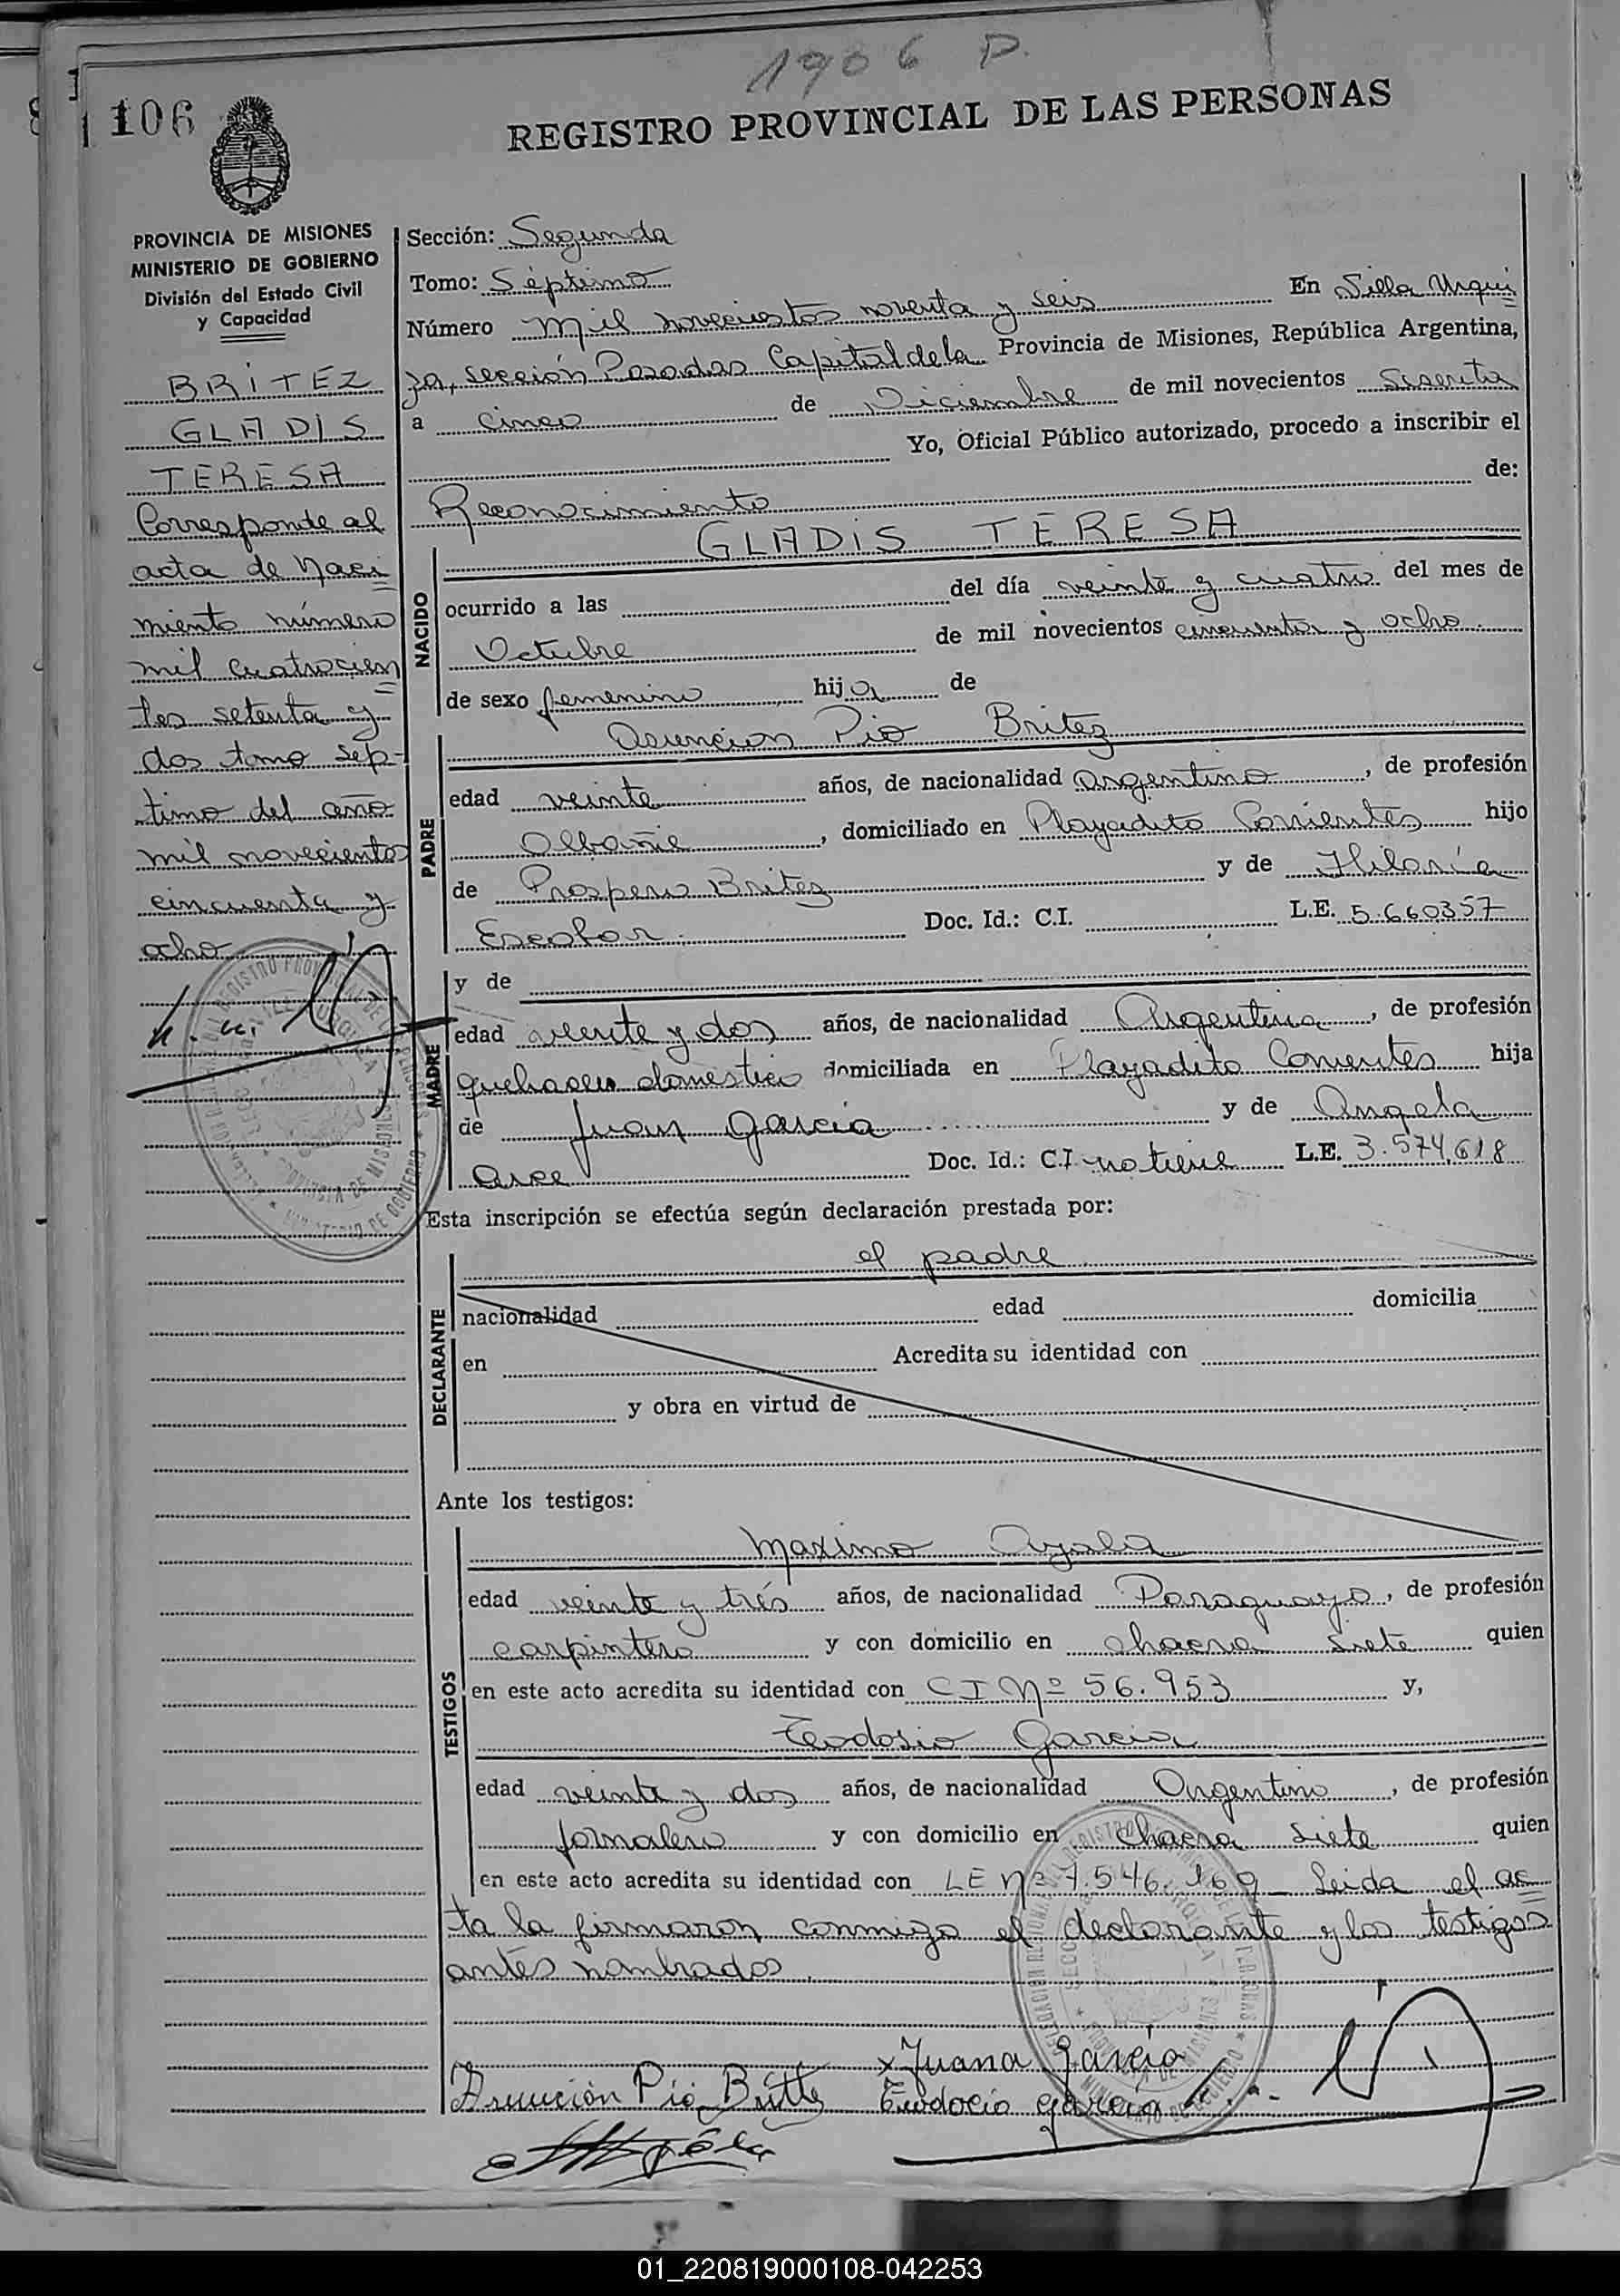 1906 P.
106
REGISTRO PROVINCIAL DE LAS PERSONAS
PROVINCIA DE MISIONES
MINISTERIO DE GOBIERNO
División del Estado Civil
y Capacidad
BRITEZ
GLADIS
TERESA
Corresponde al
acta de Naci
miento número
mil cuatrocien
tos setenta y
dos tomo sep-
timo del año
mil novecientos
cincuenta y
ocho
Sección: Segunda
Tomo: Séptimo
Número Mil novecientos noventa y seis En Villa Urqui
za, sección Posadas Capital de la Provincia de Misiones, República Argentina,
a cinco de Diciembre de mil novecientos sesenta
Yo, Oficial Público autorizado, procedo a inscribir el
Reconocimiento de:
NACIDO
GLADIS TERESA
ocurrido a las del día veinte y cuatro del mes de
Octubre de mil novecientos cincuenta y ocho
de sexo femenino hija de
PADRE
Asuncion Pio Britez
edad veinte años, de nacionalidad argentino, de profesión
Albañil, domiciliado en Playadito Corrientes hijo
de Prospero Britez y de Hilaria
Escobar Doc. Id.: C.I. L.E. 5.660357
MADRE
y de
edad veinte y dos años, de nacionalidad Argentina, de profesión
quehacer domestico domiciliada en Playadito Corrientes hija
de Juan Garcia y de Angela
Arce Doc. Id.: C.I no tiene L.E. 3.574.618
Esta inscripción se efectúa según declaración prestada por:
DECLARANTE
el padre
nacionalidad edad domicilia
en Acredita su identidad con
y obra en virtud de
Ante los testigos:
TESTIGOS
Maximo Ayala
edad veinte y trés años, de nacionalidad Paraguayo, de profesión
carpintero y con domicilio en chacra siete quien
en este acto acredita su identidad con CI Nº 56.953 y,
Teodosio Garcia
edad veinte y dos años, de nacionalidad Argentino, de profesión
jornalero y con domicilio en chacra siete quien
en este acto acredita su identidad con LE Nº 7.546.169 Leida el ac
ta la firmaron conmigo el declarante y los testigos
antes nombrados.
x Juana Garcia
Asunción Pió Britte Teodocio garcia
01_220819000108-042253